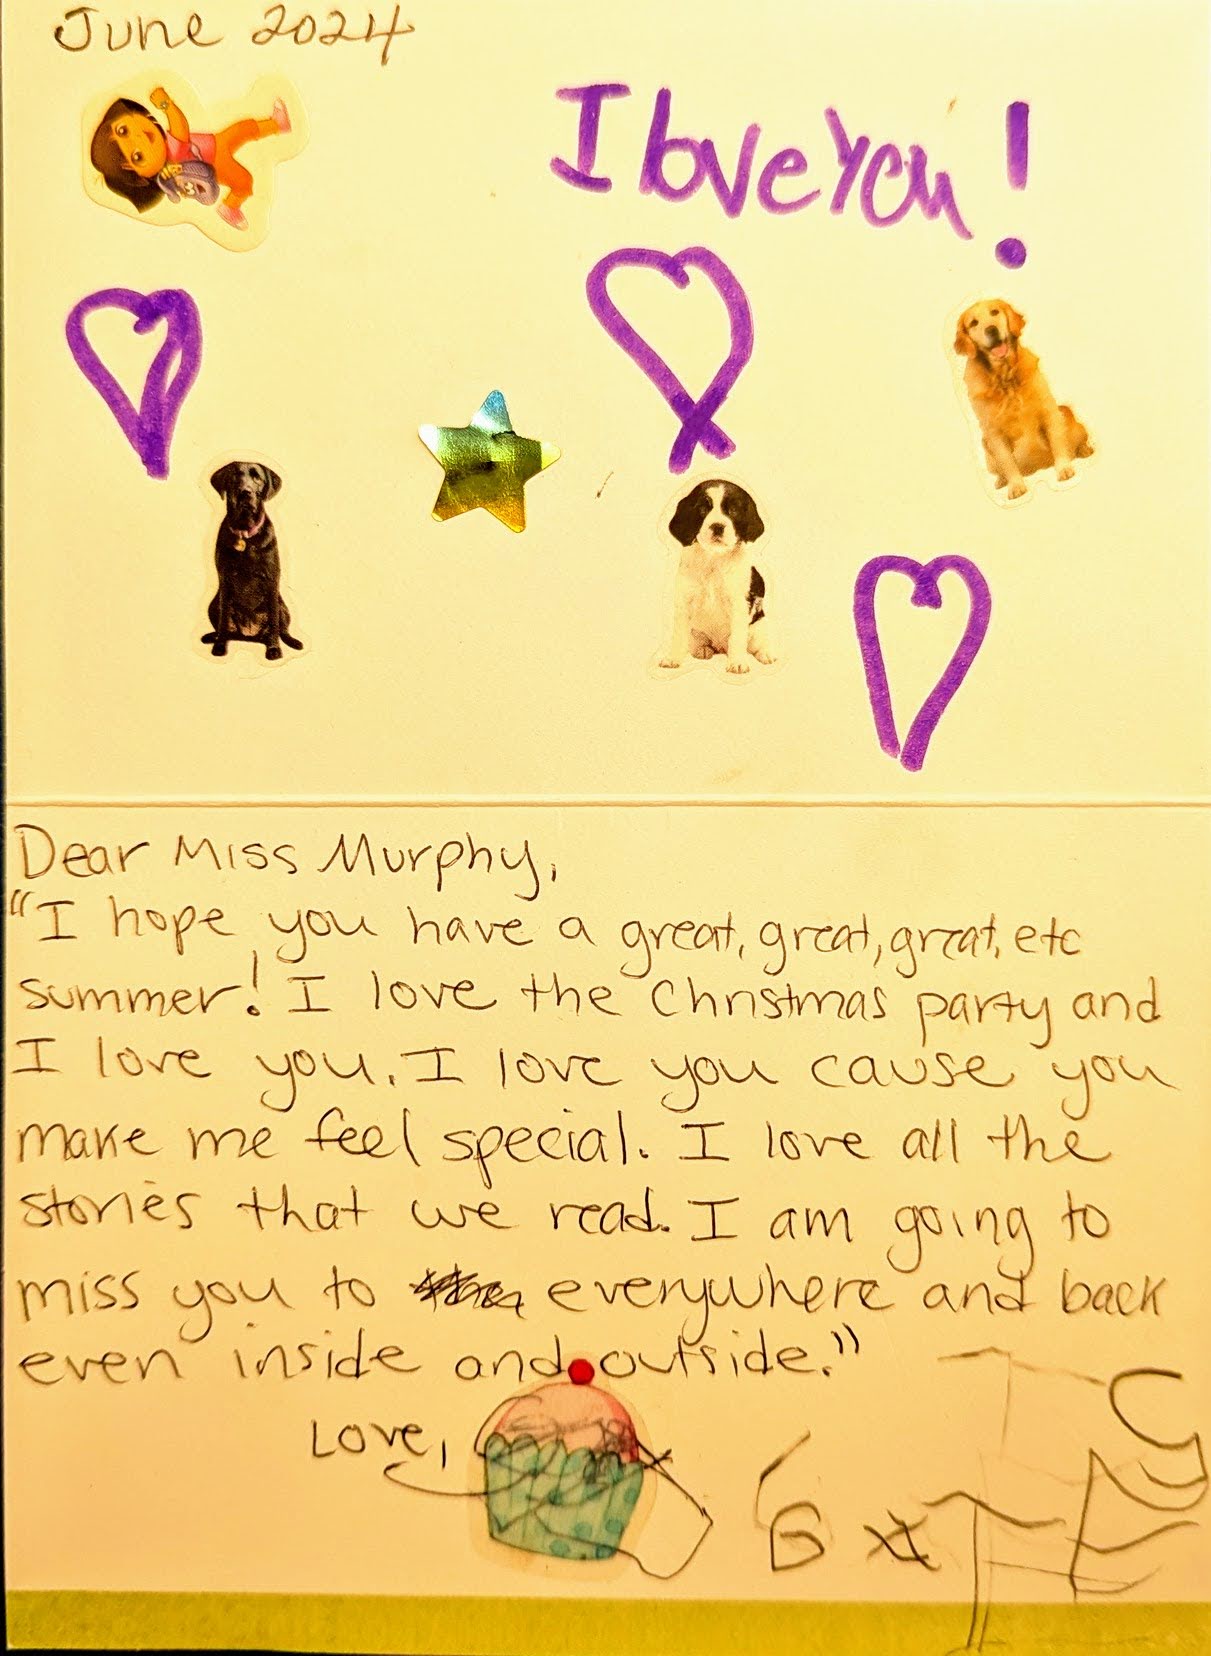 June 2024
I love You!
Dear Miss Murphy,
"I hope you have a great, great, great, etc
summer! I love the Christmas party and
I love you. I love you cause you
make me feel special. I love all the
stories that we read. I am going to
miss you to everywhere and back
even inside and outside."
Love,